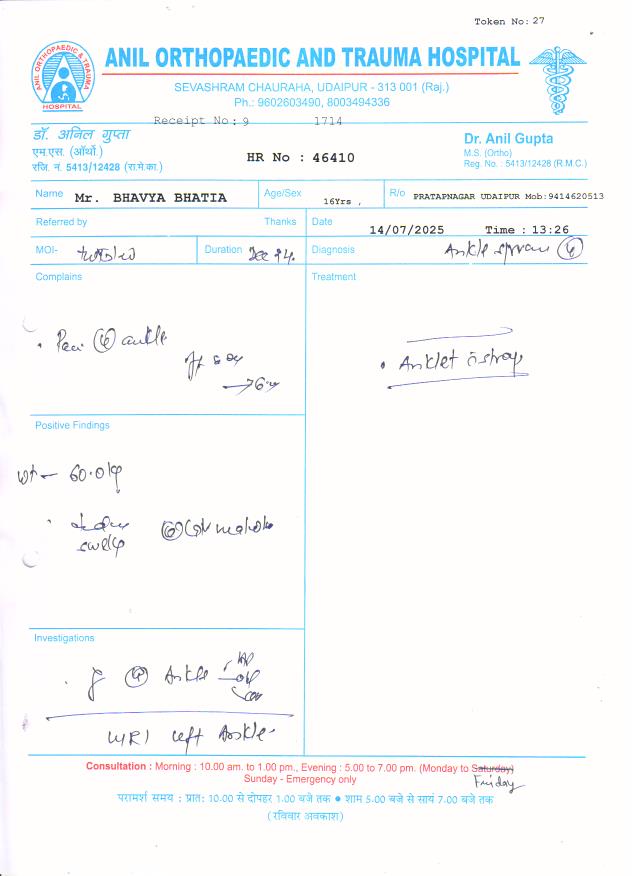 Token No: 27
ANIL ORTHOPAEDIC & TRAUMA
HOSPITAL
ANIL ORTHOPAEDIC AND TRAUMA HOSPITAL
SEVASHRAM CHAURAHA, UDAIPUR - 313 001 (Raj.)
Ph.: 9602603490, 8003494336
Receipt No: 9 1714
डॉ. अनिल गुप्ता
एम.एस. (ऑर्थो.)
रजि. नं. 5413/12428 (रा.मे.का.)
HR No : 46410
Dr. Anil Gupta
M.S. (Ortho)
Reg. No. : 5413/12428 (R.M.C.)
Name Mr. BHAVYA BHATIA Age/Sex 16Yrs , R/o PRATAPNAGAR UDAIPUR Mob:9414620513
Referred by Thanks Date 14/07/2025 Time : 13:26
MOI- Duration Dec 24. Diagnosis Ankle sprain
Complains Treatment
• Pain ankle
• Anklet strap
Positive Findings
wt - 60.0 kg
Investigations
Ankle AP
MRI left Ankle
Consultation : Morning : 10.00 am. to 1.00 pm., Evening : 5.00 to 7.00 pm. (Monday to Saturday)
Friday
Sunday - Emergency only
परामर्श समय : प्रातः 10.00 से दोपहर 1.00 बजे तक ● शाम 5.00 बजे से सायं 7.00 बजे तक
(रविवार अवकाश)